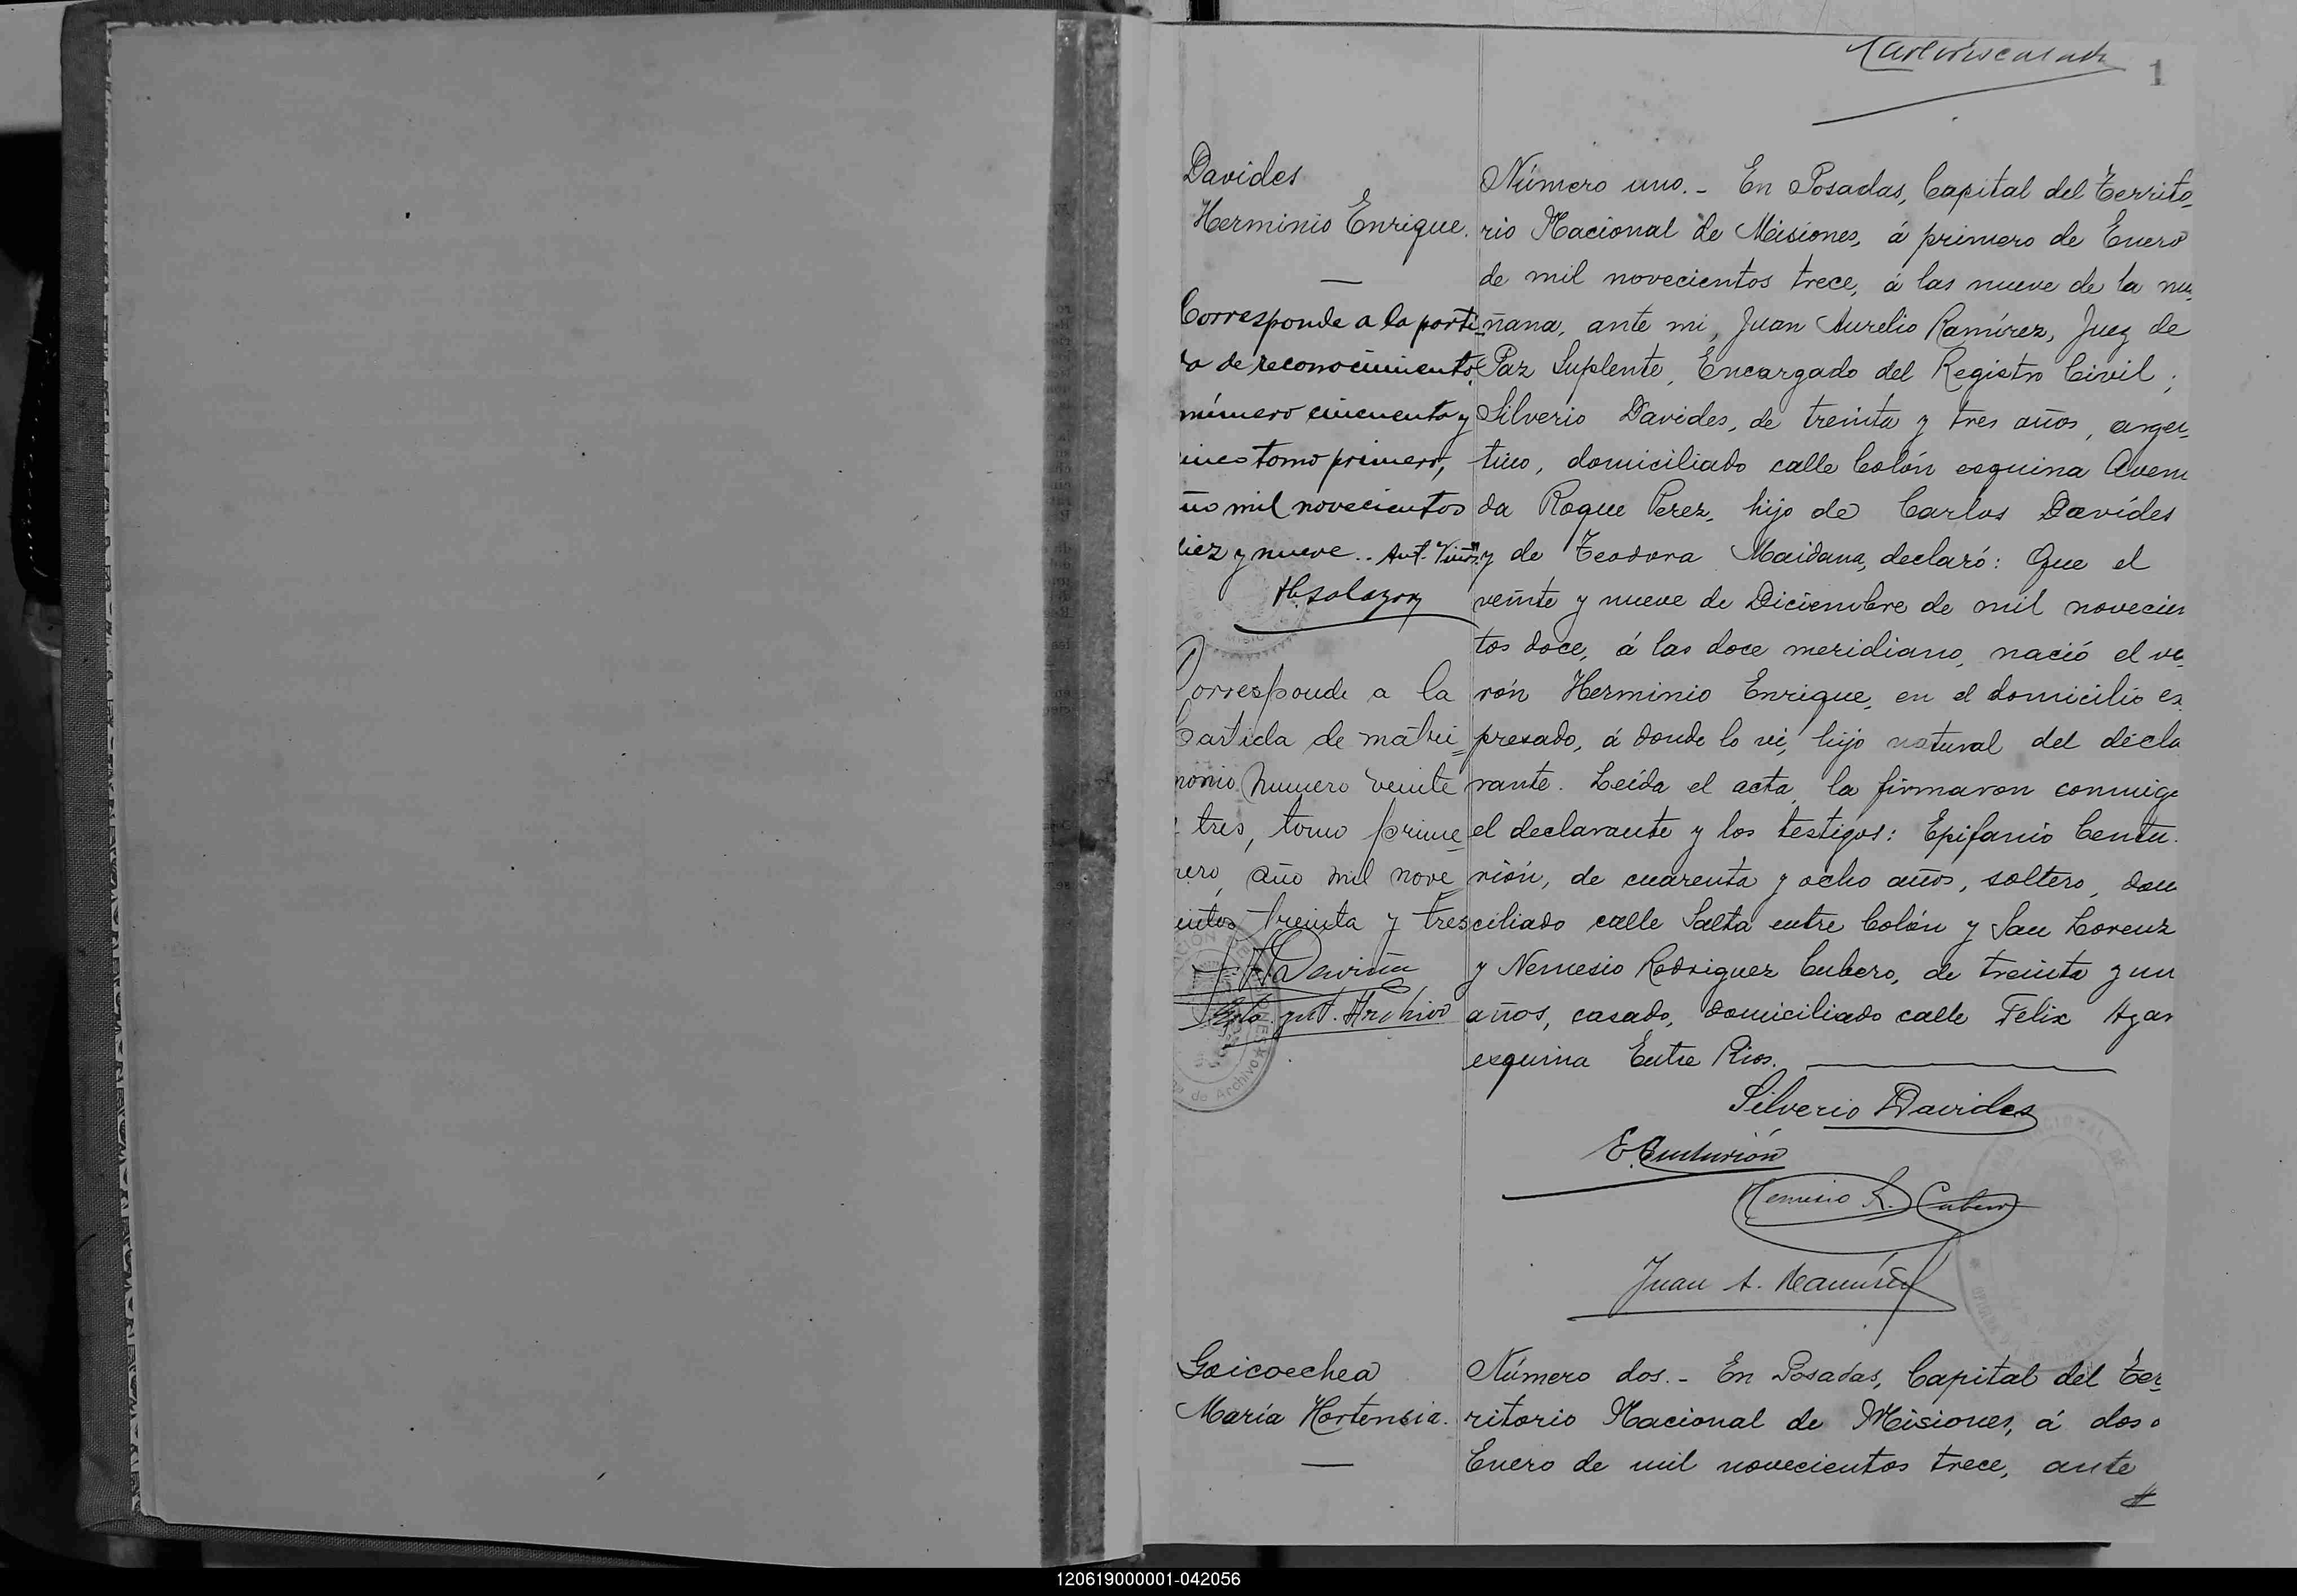 1
Davides
Herminio Enrique.
Corresponde a la parti-
da de reconocimiento
número cincuenta y
cinco tomo primero,
año mil novecientos
diez y nueve.. Aut.
Corresponde a la
Partida de matri=
monio numero veinte
y tres, tomo prime=
rero, año mil nove=
cientos treinta y tres
Archivo
Número uno.- En Posadas, Capital del Territo-
rio Nacional de Misiones, á primero de Enero
de mil novecientos trece, á las nueve de la ma-
ñana, ante mi, Juan Aurelio Ramírez, Juez de
Paz Suplente, Encargado del Registro Civil;
Silverio Davides, de treinta y tres años, argen-
tino, domiciliado calle Colón esquina Aveni
da Roque Perez, hijo de Carlos Davídes
y de Teodora Maidana, declaró: Que el
veinte y nueve de Diciembre de mil novecien
tos doce, á las doce meridiano, nació el va-
rón Herminio Enrique, en el domicilio ex
presado, á donde lo vi, hijo natural del decla
rante. Leída el acta, la firmaron conmigo
el declarante y los testigos: Epifanio Centu-
rión, de cuarenta y ocho años, soltero, domi
ciliado calle Salta entre Colón y San Lorenz
y Nemesio Rodriguez Cubero, de treinta y un
años, casado, domiciliado calle Felix Azar
esquina Entre Rios.
Silverio Davides
E. Centurión
Nemesio R. Cubero
Juan A. Ramírez
Goicoechea
María Hortensia.
Número dos.- En Posadas, Capital del Ter-
ritorio Nacional de Misiones, á dos
Enero de mil novecientos trece, ante
120619000001-042056